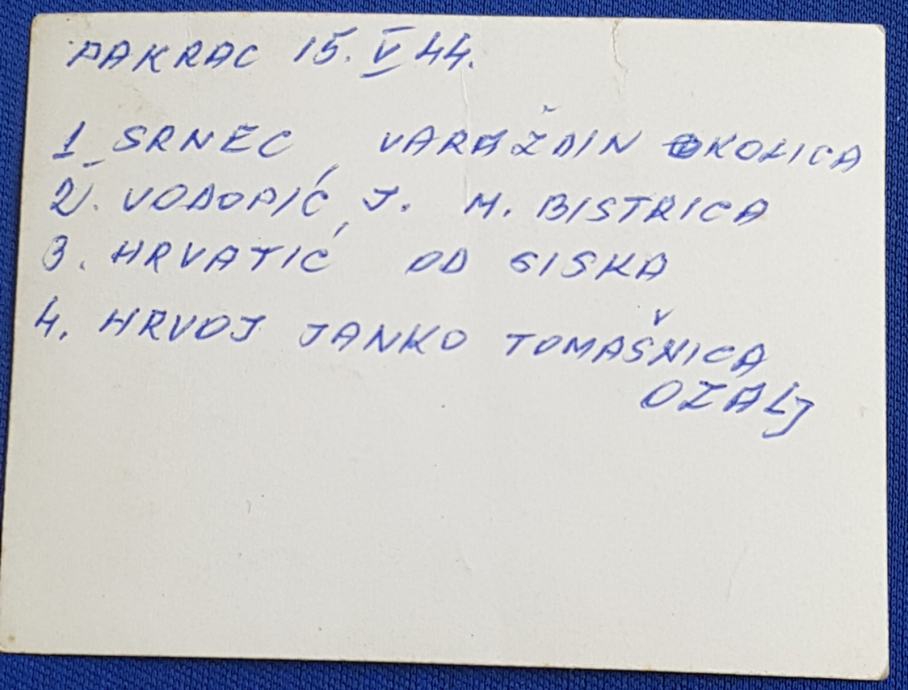 PAKRAC 15. V 44.
1 SRNEC, VARAŽDIN OKOLICA
2. VODOPIĆ, J. M. BISTRICA
3. HRVATIĆ OD SISKA
4. HRVOJ JANKO TOMAŠNICA
OZALJ